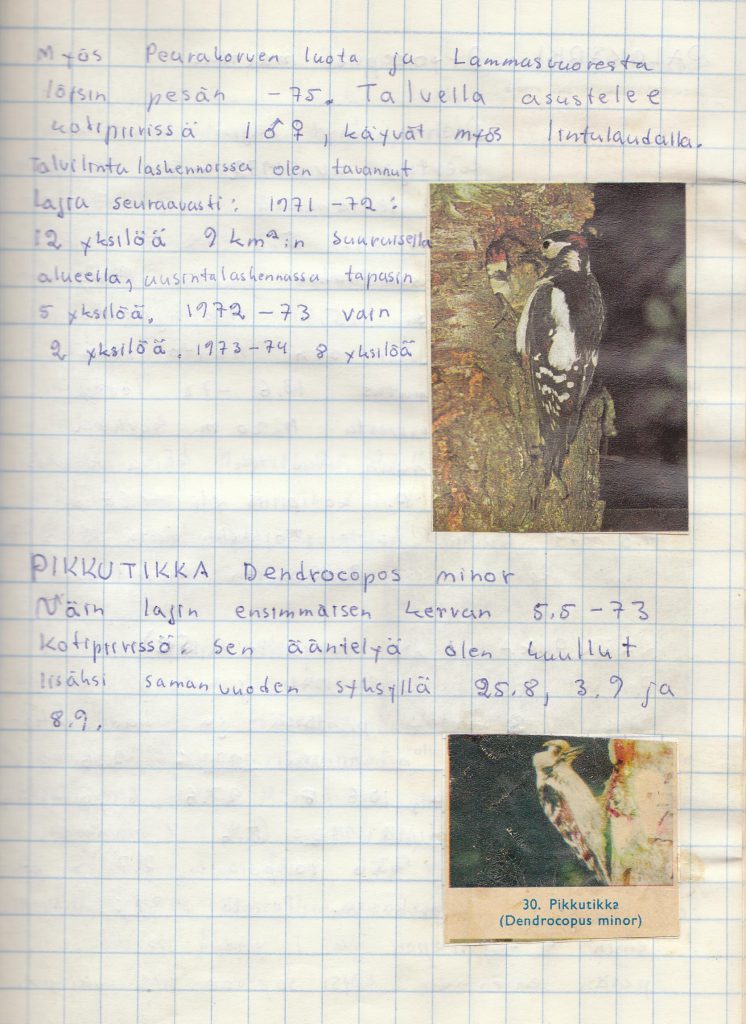 Myös Peurakorven luota ja Lammasvuoresta
löysin pesän -75. Talvella asustelee
kotipiirissä 1 ♂ ♀, käyvät myös lintulaudalla.
Talvilintulaskennoissa olen tavannut
lajia seuraavasti: 1971-72:
12 yksilöä 9 km²:n suuruisella
alueella, uusintalaskennassa tapasin
5 yksilöä. 1972-73 vain
2 yksilöä. 1973-74 8 yksilöä
PIKKUTIKKA Dendrocopos minor
Näin lajin ensimmäisen kerran 5.5-73
kotipiirissä. Sen ääntelyä olen kuullut
lisäksi saman vuoden syksyllä 25.8, 3.9 ja
8.9.
30. Pikkutikka
(Dendrocopus minor)